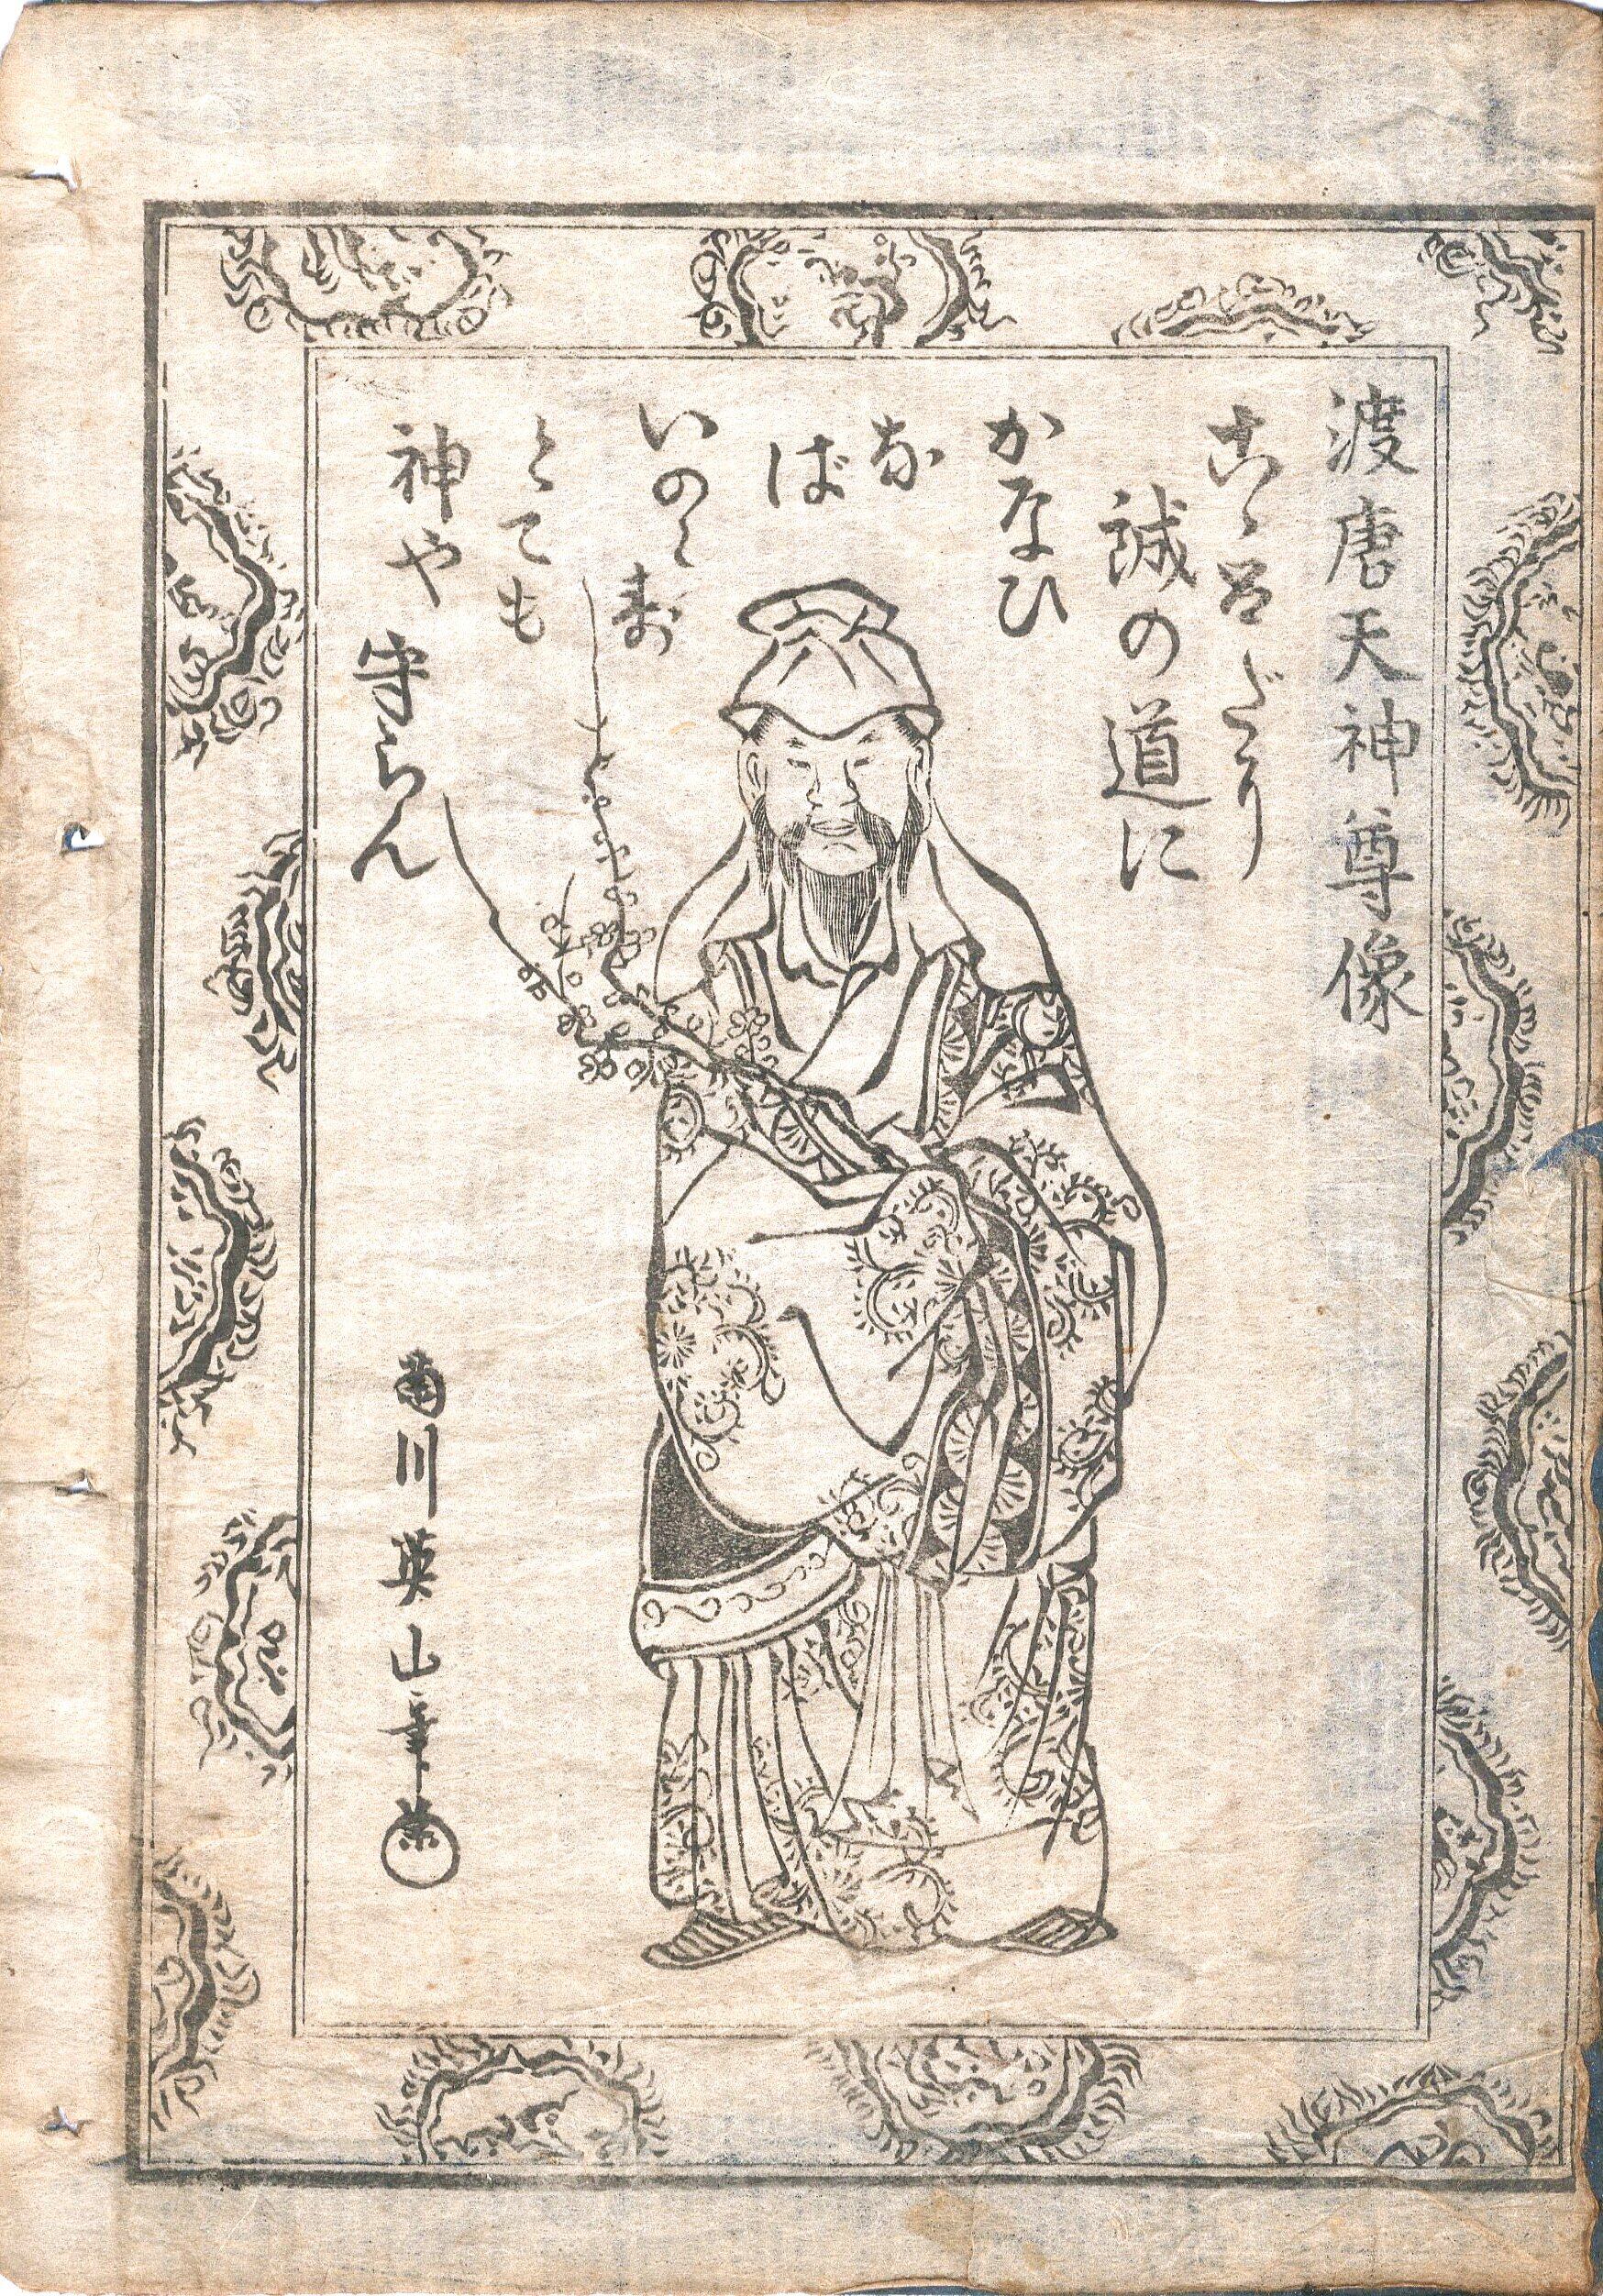 渡唐天神尊像
こゝろだに
誠の道に
かなひ
な
ば
いのらず
とても
神や
守らん
菊川英山筆